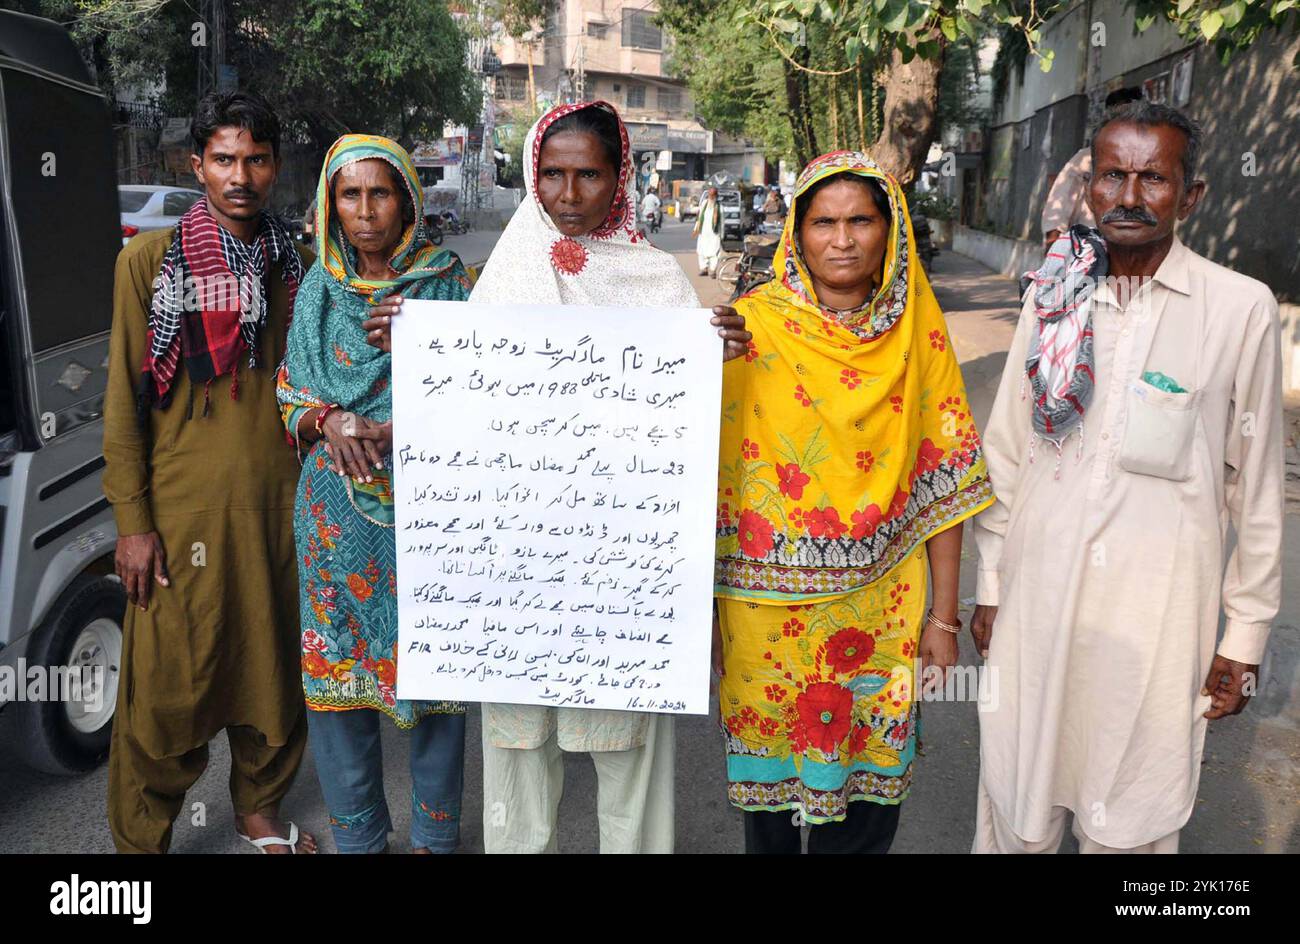 میرا نام مارگریٹ زوجہ پارو ہے۔
میری شادی ماتلی 1988 میں ہوئی۔ میرے
5 بچے ہیں۔ میں کرسچن ہوں۔
23 سال پہلے محمد رمضان ماچھی نے مجھے دو نامعلوم
افراد کے ساتھ مل کر اغوا کیا۔ اور تشدد کیا۔
چھریوں اور ڈنڈوں سے وار کئے اور مجھے معذور
کرنے کی کوشش کی۔ میرے بازو، ٹانگیں اور سر پر وار
کر کے گہرے زخم کئے۔ بھیک مانگنے پر اکساتا تھا۔
پورے پاکستان میں مجھے لے کر گیا اور بھیک مانگنے کو کہتا
مجھے انصاف چاہیئے اور اس مافیا محمد رمضان
محمد مرید اور ان کی بہن کے خلاف FIR
درج کی جائے۔ کورٹ میں کیس داخل کر دیا ہے۔
مارگریٹ 16-11-2024
alamy
Image ID: 2YK176E
www.alamy.com